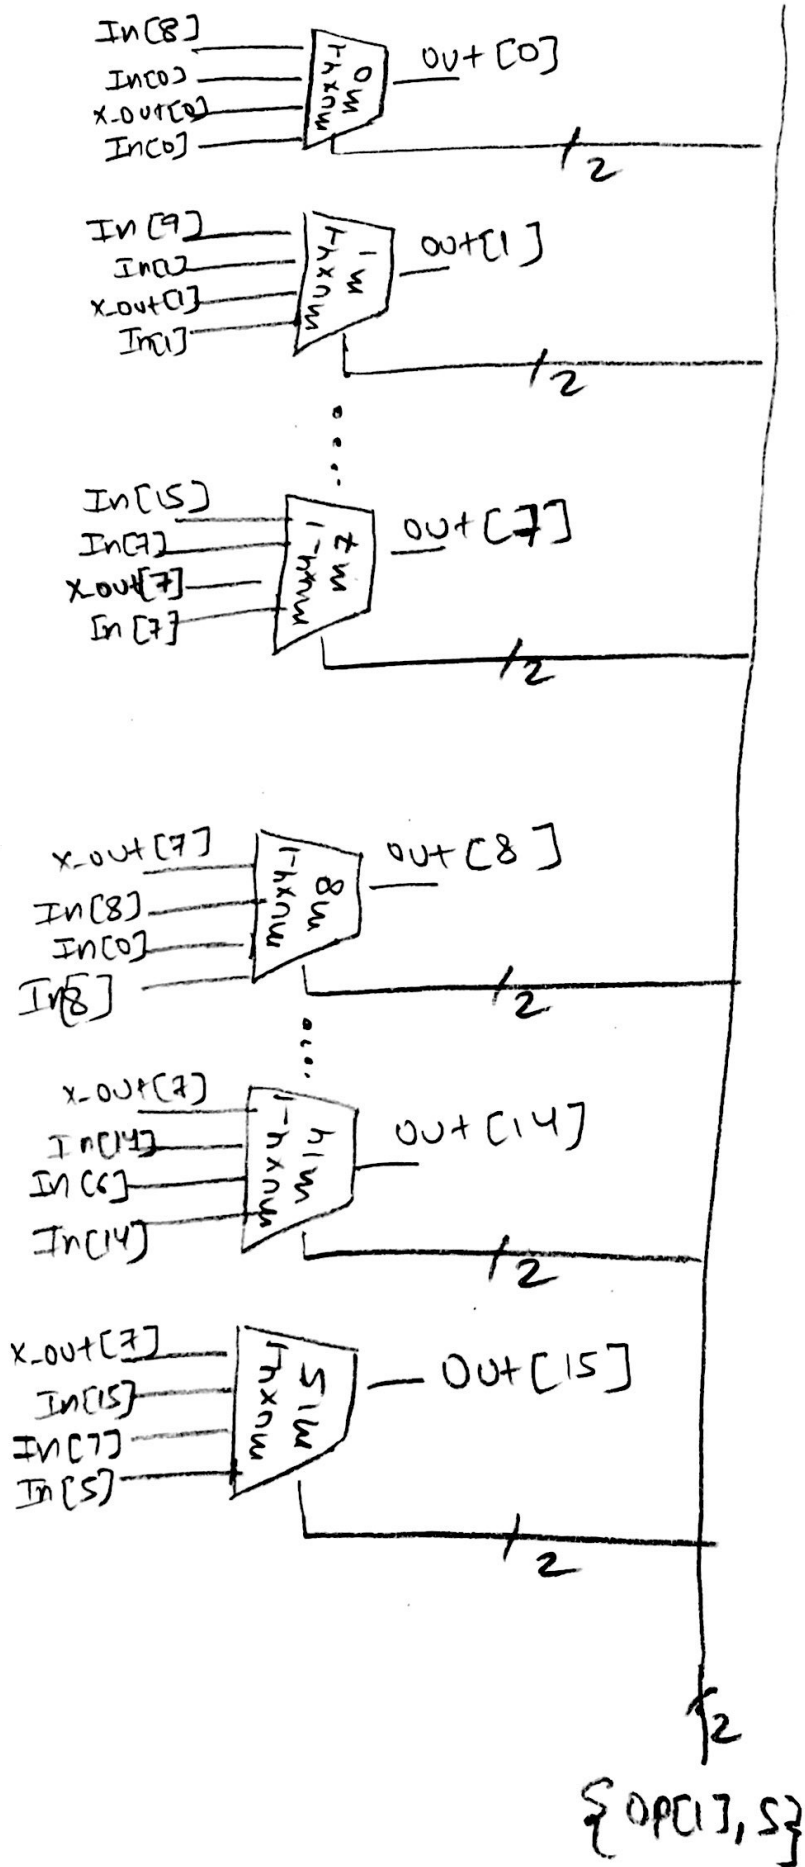 In[8]
In[0]
x_out[0]
In[0]
mux4-1
m0
out[0]
2
In[9]
In[1]
x_out[1]
In[1]
mux4-1
m1
out[1]
2
In[15]
In[7]
x_out[7]
In[7]
mux4-1
m7
out[7]
2
x_out[7]
In[8]
In[0]
In[8]
mux4-1
m8
out[8]
2
x_out[7]
In[14]
In[6]
In[14]
mux4-1
m14
out[14]
2
x_out[7]
In[15]
In[7]
In[5]
mux4-1
m15
out[15]
2
2
{op[1], s}